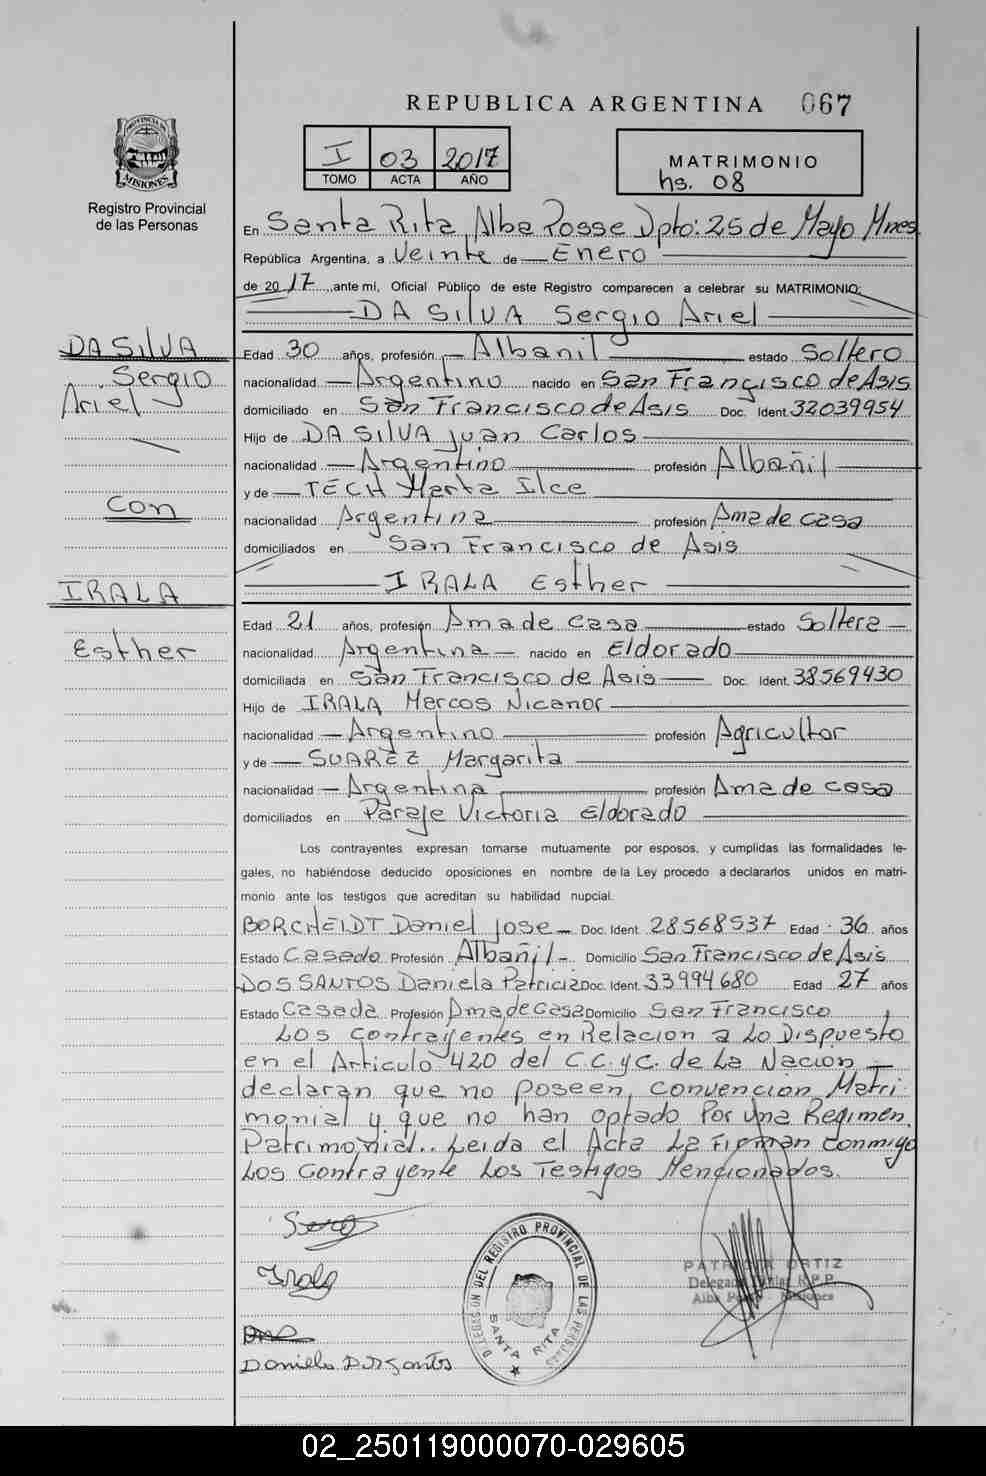 REPUBLICA ARGENTINA 067
PROVINCIA DE MISIONES
Registro Provincial
de las Personas
I 03 2017
TOMO ACTA AÑO
MATRIMONIO
hs. 08
En Santa Rita, Alba Posse Dpto: 25 de Mayo Mnes.
República Argentina, a Veinte de Enero
de 2017, ante mi, Oficial Público de este Registro comparecen a celebrar su MATRIMONIO:
DA SILVA Sergio Ariel
DA SILVA
Sergio
Ariel
Con
IRALA
Esther
Edad 30 años, profesión Albanil estado Soltero
nacionalidad Argentino nacido en San Francisco de Asis
domiciliado en San Francisco de Asis Doc. Ident. 32039954
Hijo de DA SILVA Juan Carlos
nacionalidad Argentino profesión Albañil
y de TECH Marta Ilce
nacionalidad Argentina profesión Ama de casa
domiciliados en San Francisco de Asis
IRALA Esther
Edad 21 años, profesión Ama de casa estado Soltera
nacionalidad Argentina nacido en Eldorado
domiciliada en San Francisco de Asis Doc. Ident. 38569430
Hijo de IRALA Marcos Nicanor
nacionalidad Argentino profesión Agricultor
y de SUAREZ Margarita
nacionalidad Argentina profesión Ama de casa
domiciliados en Paraje Victoria Eldorado
Los contrayentes expresan tomarse mutuamente por esposos, y cumplidas las formalidades le-
gales, no habiéndose deducido oposiciones en nombre de la Ley procedo a declararlos unidos en matri-
monio ante los testigos que acreditan su habilidad nupcial.
BORCHEIDT Daniel Jose Doc. Ident. 28568537 Edad 36 años
Estado Casado Profesión Albañil Domicilio San Francisco de Asis
DOS SANTOS Daniela Patricia Doc. Ident. 33994680 Edad 27 años
Estado Casada Profesión Ama de Casa Domicilio San Francisco
Los Contrayentes en Relacion a Lo Dispuesto
en el Articulo 420 del C.C. y C. de La Nacion
declaran que no poseen, convencion Matri
monial y que no han optado Por una Regimen
Patrimonial.. Leida el Acta La Firman conmigo
Los Contrayente Los Testigos Mencionados.
Irala
Daniela D.Santos
DELEGACION DEL REGISTRO PROVINCIAL DE LAS PERSONAS
SANTA RITA
PATRICIA ORTIZ
Delegada R.P.P.
Alba Posse - Misiones
02_250119000070-029605